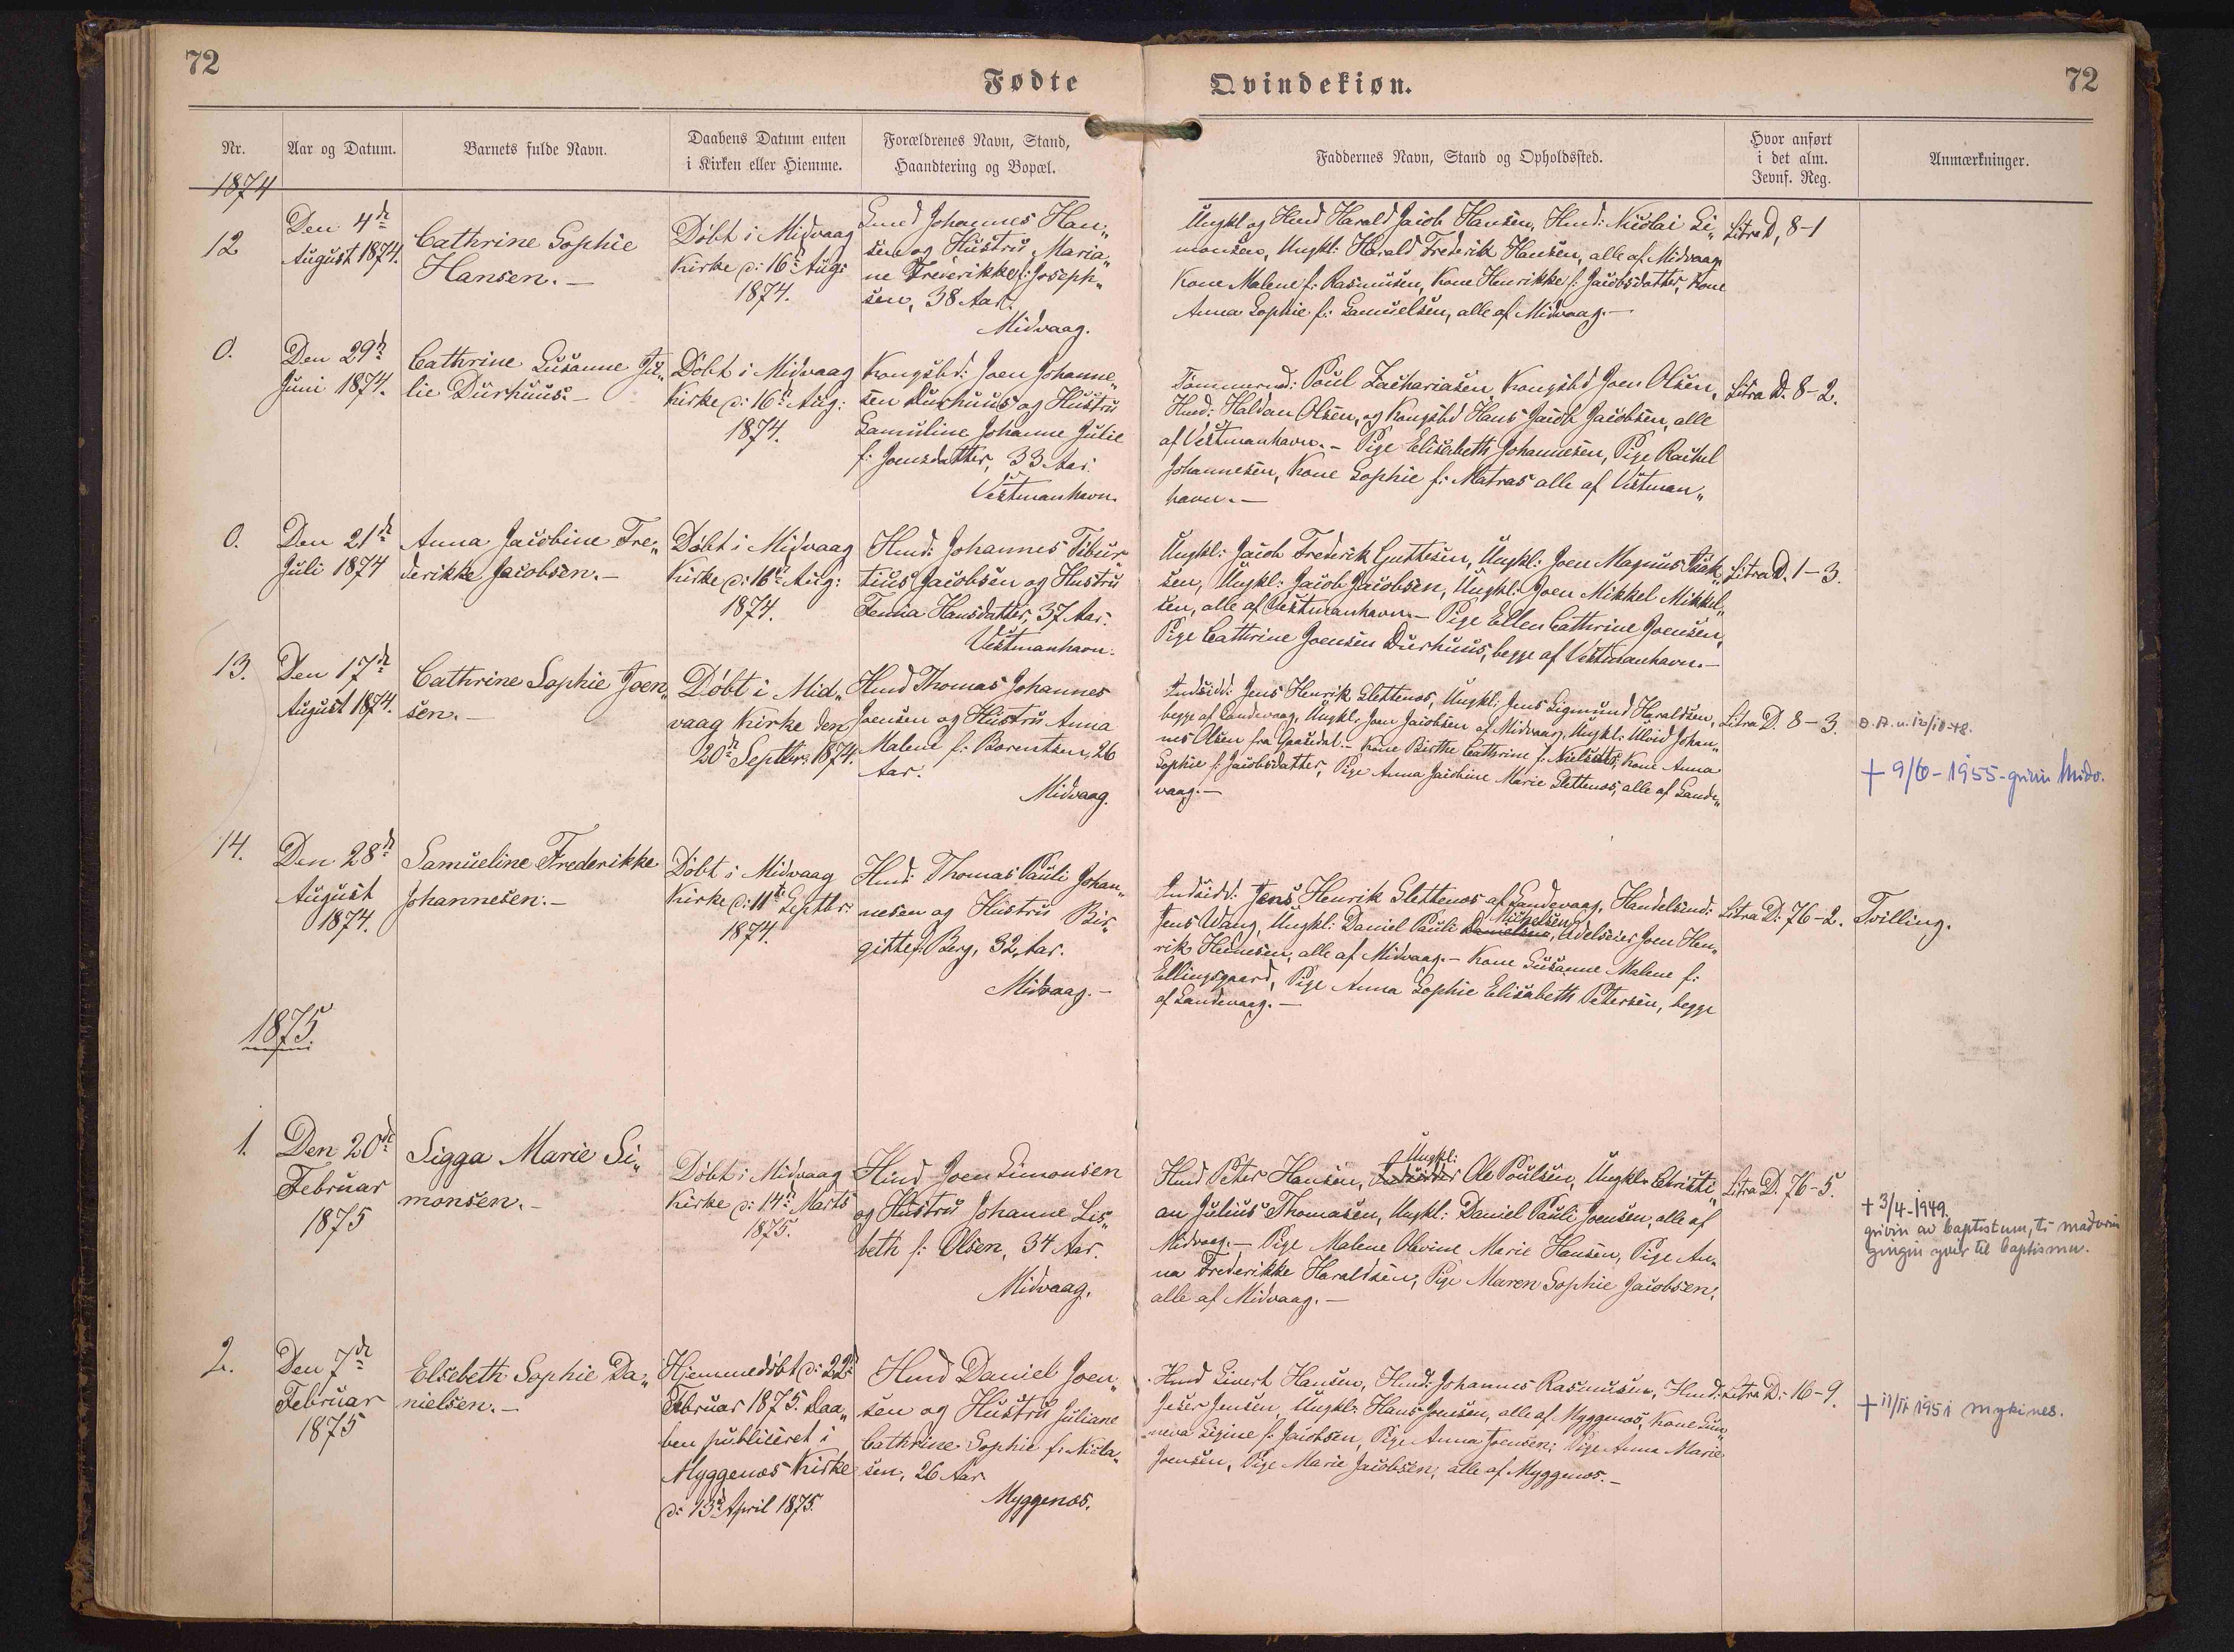 72
Fødte
Qvindekiøn.
72
Nr.
Aar og Datum.
Barnets fulde Navn.
Daabens Datum enten
i Kirken eller Hiemme.
Forældrenes Navn, Stand,
Haandtering og Bopæl.
Faddernes Navn, Stand og Opholdssted.
Hvor anført
i det alm.
Jevnf. Reg.
Anmærkninger.
1874
12
Den 4de
August 1874.
Cathrine Sophie
Hansen.-
Döbt i Midvaag
Kirke d: 16d Aug:
1874.
Johannes Han„
sen og Hustru Maria„
ne Frederikke f: Joseph„
sen, 38 Aar.
Midvaag.
Ungkl og Hmd Harald Jacob Hansen, Hmd: Nicolai Si„
monsen, Ungkl: Harald Frederik Hansen, alle af Midvaag
Kone Malene f: Rasmusen, Kone Henrikke f: Jacobsdatter, Kone
Anna Sophie f: Samuelsen, alle af Midvaag.-
Litra D, 8-1
0.
Den 29d
Juni 1874.
Cathrine Susanne Ju„
lie Durhuus.-
Döbt i Midvaag
Kirke d: 16d Aug:
1874.
Kongsbd: Joen Johanne„
sen Durhuus og Hustru
Samuline Johanne Julie
f: Joensdatter, 33 Aar.
Vestmanhavn.
Tömmermd: Poul Zachariasen, Kongsbd Joen Olsen,
Hmd: Haldan Olsen, og Kongsbd Hans Jacob Jacobsen, alle
af Vestmanhavn.- Pige Elisabeth Johannesen, Pige Rachel
Johannesen, Kone Sophie f: Matras alle af Vestman„
havn.-
Litra D. 8-2.
0.
Den 21d
Juli 1874
Anna Jacobine Fre„
derikke Jacobsen.-
Döbt i Midvaag
Kirke d: 16d Aug:
1874.
Hmd: Johannes Tibur
tius Jacobsen og Hustru
Hansdatter, 37 Aar.
Vestmanhavn.
Ungkl: Jacob Frederik Guttesen, Ungkl: Joen Magnus
sen, Ungkl: Jacob Jacobsen, Ungkl: Joen Mikkel Mikkel„
sen, alle af Vestmanhavn.- Pige Ellen Cathrine Joensen,
Pige Cathrine Joensen Durhuus, begge af Vestmanhavn.-
Litra D. 1-3.
13.
Den 17d
August 1874.
Cathrine Sophie Joen„
sen.-
Döbt i Mid„
vaag Kirke den
20d Septbr. 1874.
Hmd Thomas Johannes
Joensen og Hustru Anna
Malene f: Barentsen, 26
Aar.
Midvaag.
Indsidd: Jens Henrik Slettenæs, Ungkl: Jens Sigmund Haraldsen,
begge af Sandevaag, Ungkl: Joen Jacobsen af Midvaag, Ungkl: Johan„
nes Olsen fra Gaasedal.- Kone Birthe Cathrine f: Kone Anna
Sophie f: Jacobsdatter, Pige Anna Jacobine Marie Slettenæs, alle af Sande„
vaag.-
Litra D. 8-3.
12/10-48.
+ 9/6-1955- Midv.
14.
Den 28d
August
1874.
Samueline Frederikke
Johannesen.-
Döbt i Midvaag
Kirke d: 11t Septbr:
1874.
Hmd: Thomas Pauli Johan„
nesen og Hustru Bir„
gitte f: Berg, 32 Aar.
Midvaag.-
Indsidd: Jens Henrik Slettenæs af Sandevaag, Handelsmd:
Jens Wang, Ungkl: Daniel Pauli Danielsen Michelsen, Odelseier Joen Hen„
rik Heinesen, alle af Midvaag.- Kone Susanne Malene f:
Ellingsgaard, Pige Anna Sophie Elisabeth Petersen, begge
af Sandevaag.-
Litra D: 76-2.
Tvilling.
1875.
1.
Den 20d
Februar
1875
Sigga Marie Si„
monsen.-
Döbt i Midvaag
Kirke d: 14d Marts
1875.
Hmd Joen Simonsen
og Hustru Johanne Lis„
beth f: Olsen, 34 Aar.
Midvaag.
Hmd Peter Hansen, Ungkl: Ole Poulsen, Ungkl: Christi„
an Julius Thomasen, Ungkl: Daniel Pauli Joensen, alle af
Midvaag.- Pige Malene Olevine Marie Hansen, Pige An„
na Frederikke Haraldsen, Pige Maren Sophie Jacobsen,
alle af Midvaag.-
Litra D. 76-5.
+ 3/4-1949.
grivin av baptistum, tí maðurin
gingin yvir til baptismu.
2.
Den 7d
Februar
1875
Elsebeth Sophie Da„
nielsen.-
Hjemmedöbt d: 22d
Februar 1875. Daa„
ben publiceret i
Myggenæs Kirke
d: 13d April 1875.
Hmd Daniel Joen„
sen og Hustru Juliane
Cathrine Sophie f: Nicla„
sen, 26 Aar
Myggenæs.
Hmd Sivert Hansen, Hmd: Johannes Rasmusen, Hmd:
Jensen, Ungkl: Hans Joensen, alle af Myggenæs, Kone Sun„
neva Sigine f: Jacobsen, Pige Anna Joensen, Pige Anna Marie
Joensen, Pige Marie Jacobsen, alle af Myggenæs.-
Litra D: 16-9.
+ 11/11 1951 mykines.